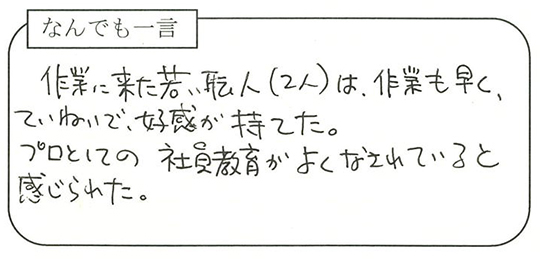 なんでも一言
作業に来た若い職人(2人)は、作業も早く、
ていねいで、好感が持てた。
プロとしての 社員教育がよくなされていると
感じられた。